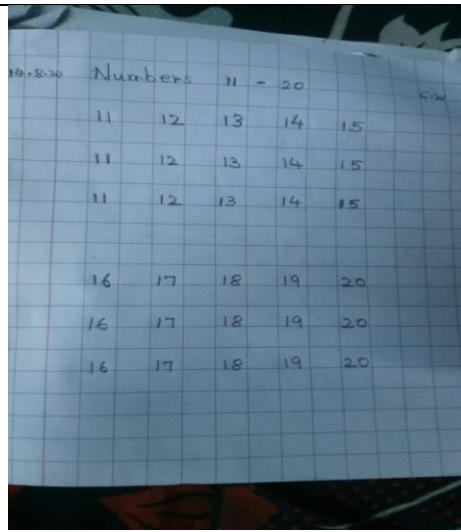 14.8.20 Numbers 11 - 20
C.W
11 12 13 14 15
11 12 13 14 15
11 12 13 14 15
16 17 18 19 20
16 17 18 19 20
16 17 18 19 20